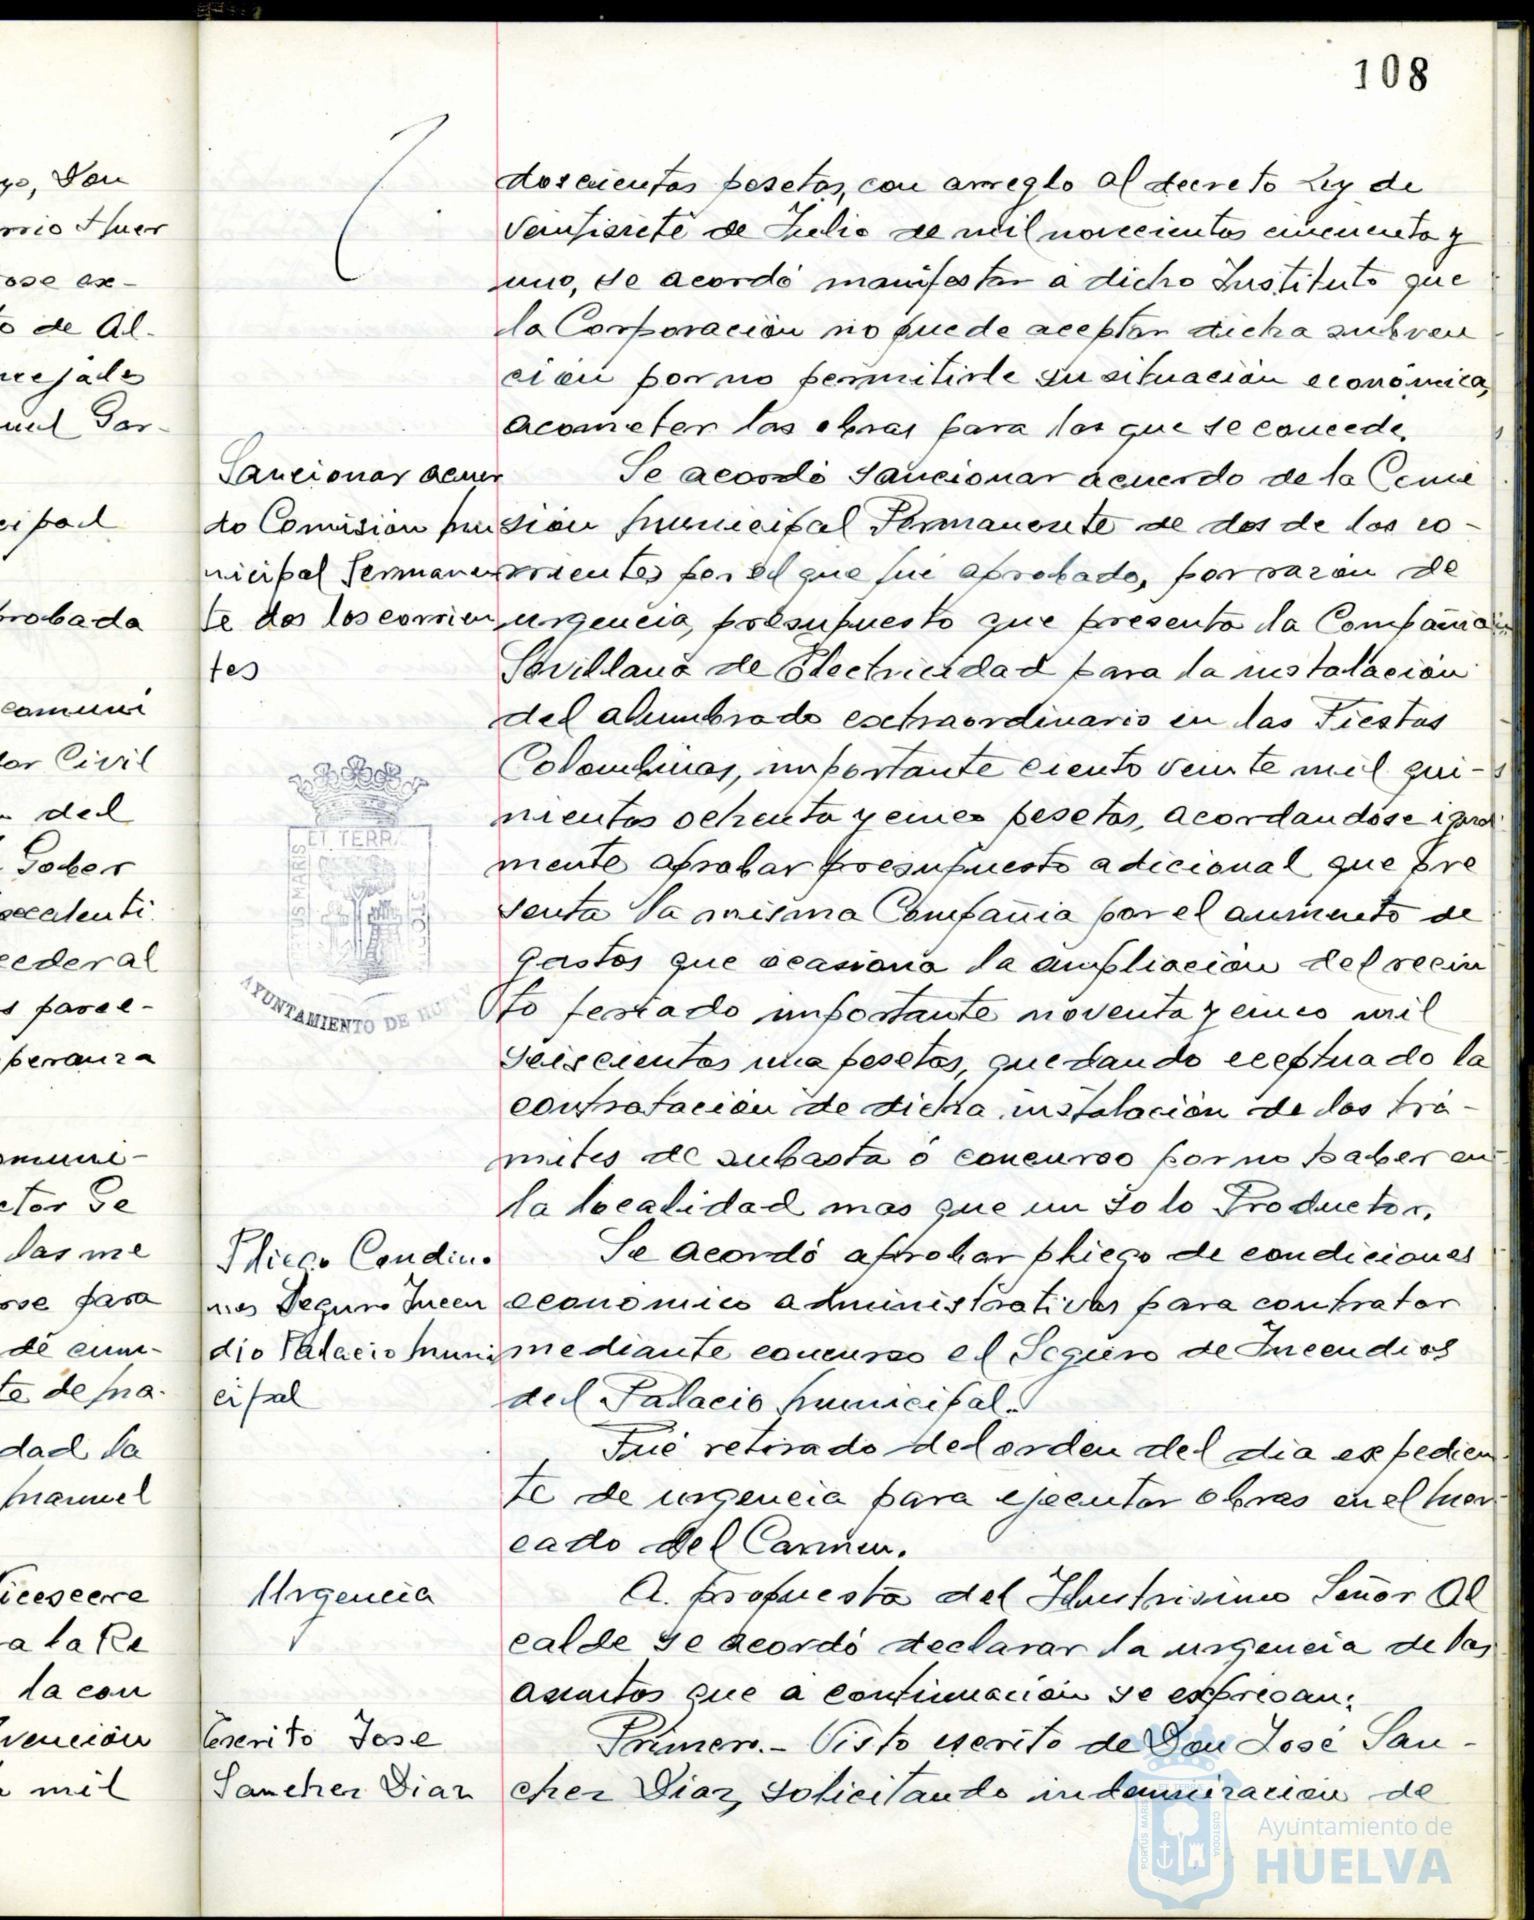 108
yo, Don
rrio Huer
ose ex-
to de Al-
ncejales
uel Gar-
cipal
probada
comuni
dor Civil
del
Gober
excelenti
ederal
s parce-
peranza
omuni-
ctor Ge
las me
rse para
dé cum-
te de ma-
dad la
Manuel
Vicesecre
a la Re
la con
vención
mil
doscientas pesetas, con arreglo al decreto Ley de
veintisiete de Julio de mil novecientos cincuenta y
uno, se acordó manifestar a dicho Instituto que
la Corporación no puede aceptar dicha subven
ción por no permitirle su situación económica,
acometer las obras para las que se concede.
Sancionar acuer
do Comisión Mu
nicipal Permanen
te dos los corrien
tes
Se acordó sancionar acuerdo de la Comi
sión Municipal Permanente de dos de los co-
rrientes por el que fué aprobado, por razón de
urgencia, presupuesto que presenta la Compañia
Sevillana de Electricidad para la instalación
del alumbrado extraordinario en las Fiestas
Colombinas, importante ciento veinte mil qui-
nientas ochenta y cinco pesetas, acordandose igual
mente aprobar presupuesto adicional que pre
senta la misma Compañia por el aumento de
gastos que ocasiona la ampliación del recin
to feriado importante noventa y cinco mil
seiscientas una pesetas, quedando eceptuado la
contratación de dicha instalación de los trá-
mites de subasta ó concurso por no haber en
la localidad mas que un solo Productor.
ET TERRÆ
PORTUS MARIS
CUSTODIA
AYUNTAMIENTO DE HUELVA
Pliego Condicio
nes Seguro Incen
dio Palacio Muni
cipal
Se acordó aprobar pliego de condiciones
economico administrativas para contratar
mediante concurso el Seguro de Incendios
del Palacio Municipal.
Fué retirado del orden del dia expedien
te de urgencia para ejecutar obras en el Mer
cado del Carmen.
Urgencia
A propuesta del Ilustrisimo Señor Al
calde se acordó declarar la urgencia de los
asuntos que a continuación se expresan:
Escrito Jose
Sanchez Diaz
Primero.- Visto escrito de Don José San-
chez Diaz, solicitando indemnización de
ET TERRÆ
PORTUS MARIS
CUSTODIA
Ayuntamiento de
HUELVA